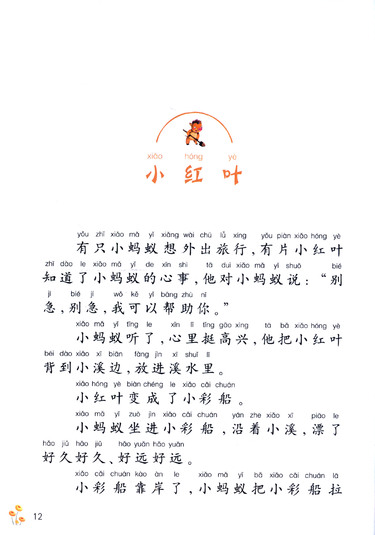 xiǎo hóng yè
小红叶
yǒu zhī xiǎo mǎ yǐ xiǎng wài chū lǚ xíng yǒu piàn xiǎo hóng yè
有只小蚂蚁想外出旅行，有片小红叶
zhī dào le xiǎo mǎ yǐ de xīn shì tā duì xiǎo mǎ yǐ shuō bié
知道了小蚂蚁的心事，他对小蚂蚁说：“别
jí bié jí wǒ kě yǐ bāng zhù nǐ
急，别急，我可以帮助你。”
xiǎo mǎ yǐ tīng le xīn lǐ tǐng gāo xìng tā bǎ xiǎo hóng yè
小蚂蚁听了，心里挺高兴，他把小红叶
bēi dào xiǎo xī biān fàng jìn xī shuǐ lǐ
背到小溪边，放进溪水里。
xiǎo hóng yè biàn chéng le xiǎo cǎi chuán
小红叶变成了小彩船。
xiǎo mǎ yǐ zuò jìn xiǎo cǎi chuán yán zhe xiǎo xī piāo le
小蚂蚁坐进小彩船，沿着小溪，漂了
hǎo jiǔ hǎo jiǔ hǎo yuǎn hǎo yuǎn
好久好久、好远好远。
xiǎo cǎi chuán kào àn le xiǎo mǎ yǐ bǎ xiǎo cǎi chuán lā
小彩船靠岸了，小蚂蚁把小彩船拉
12